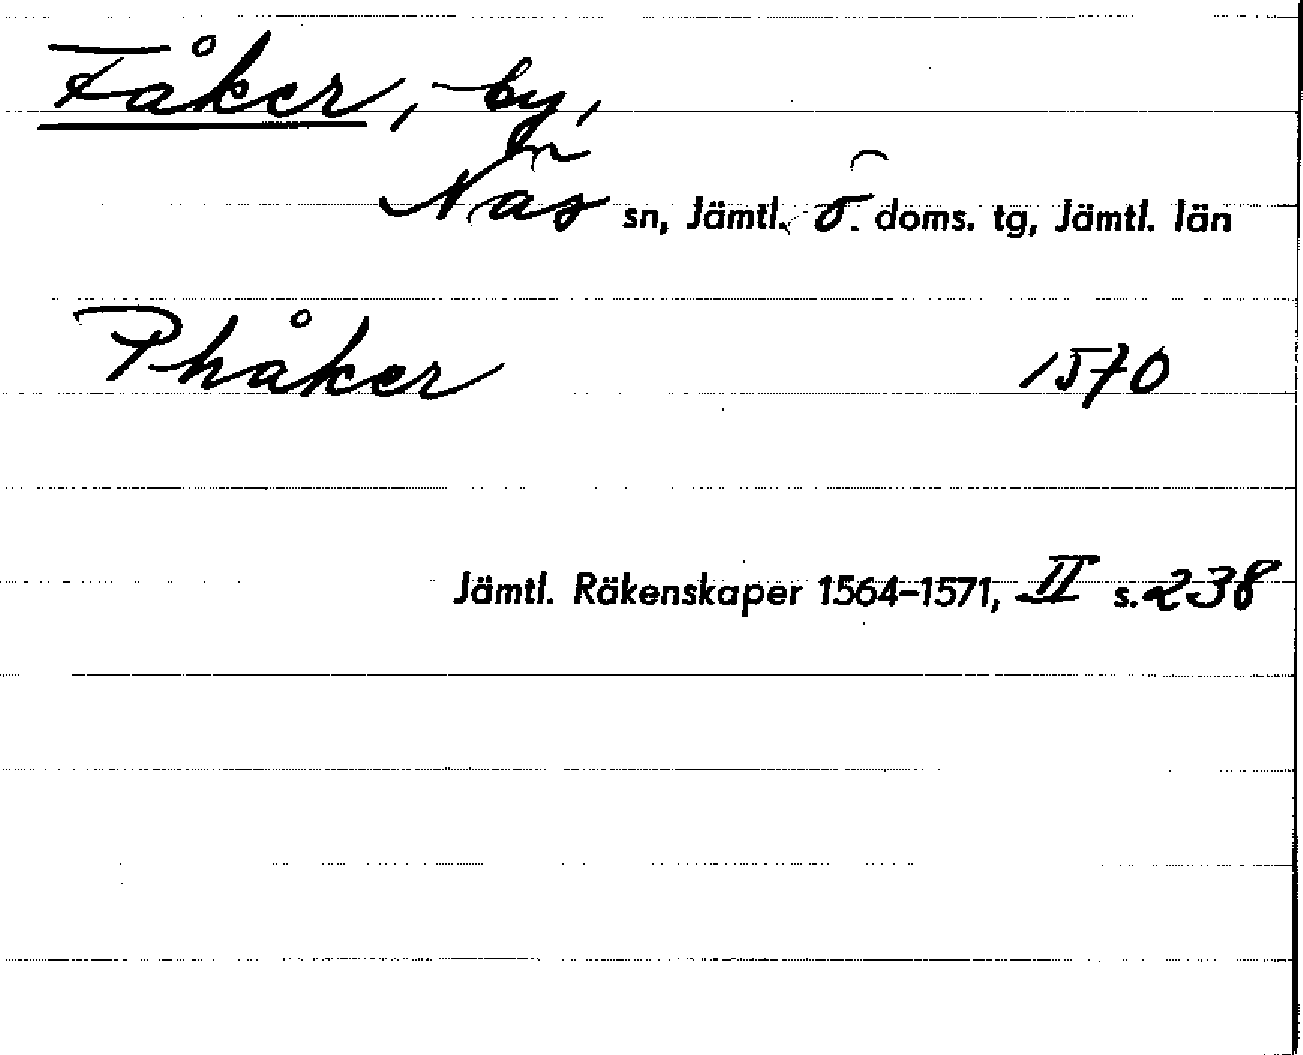 Fåker, by,
Näs sn, Jämtl. ö. doms. tg, Jämtl. län
Phåker 1570
Jämtl. Räkenskaper 1564-1571, II s. 238